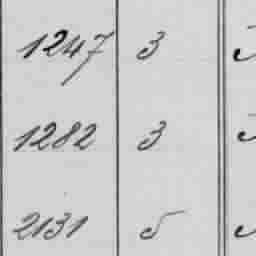 1247 3
1282 3
2131 5